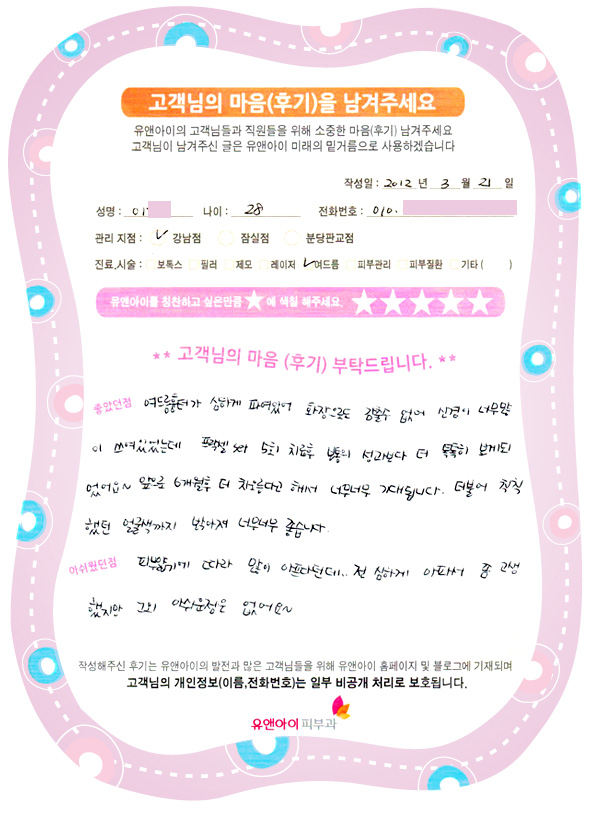 고객님의 마음(후기)을 남겨주세요
유앤아이의 고객님들과 직원들을 위해 소중한 마음(후기) 남겨주세요
고객님이 남겨주신 글은 유앤아이 미래의 밑거름으로 사용하겠습니다
작성일 : 2012 년 3 월 21 일
성명 : 이 나이 : 28 전화번호 : 010.
관리 지점 : 강남점 잠실점 분당판교점
진료,시술 : 보톡스 필러 제모 레이저 여드름 피부관리 피부질환 기타 ( )
유앤아이를 칭찬하고 싶은만큼 ★에 색칠 해주세요. ★★★★★
** 고객님의 마음 (후기) 부탁드립니다. **
좋았던점 여드름흉터가 심하게 파여있어 화장으로도 감출수 없어 신경이 너무많
이 쓰여있었는데 프락셀 5회 치료후 보통의 성과보다 더 톡톡히 보게되
었어요~ 앞으로 6개월후 더 차오른다고 해서 너무너무 기대됩니다. 더불어 칙칙
했던 얼굴색까지 밝아져 너무너무 좋습니다.
아쉬웠던점 피부쟁기에 따라 많이 아프다던데.. 전 심하게 아파서 좀 고생
했지만 그외 아쉬운점은 없어요~
작성해주신 후기는 유앤아이의 발전과 많은 고객님들을 위해 유앤아이 홈페이지 및 블로그에 기재되며
고객님의 개인정보(이름,전화번호)는 일부 비공개 처리로 보호됩니다.
유앤아이 피부과